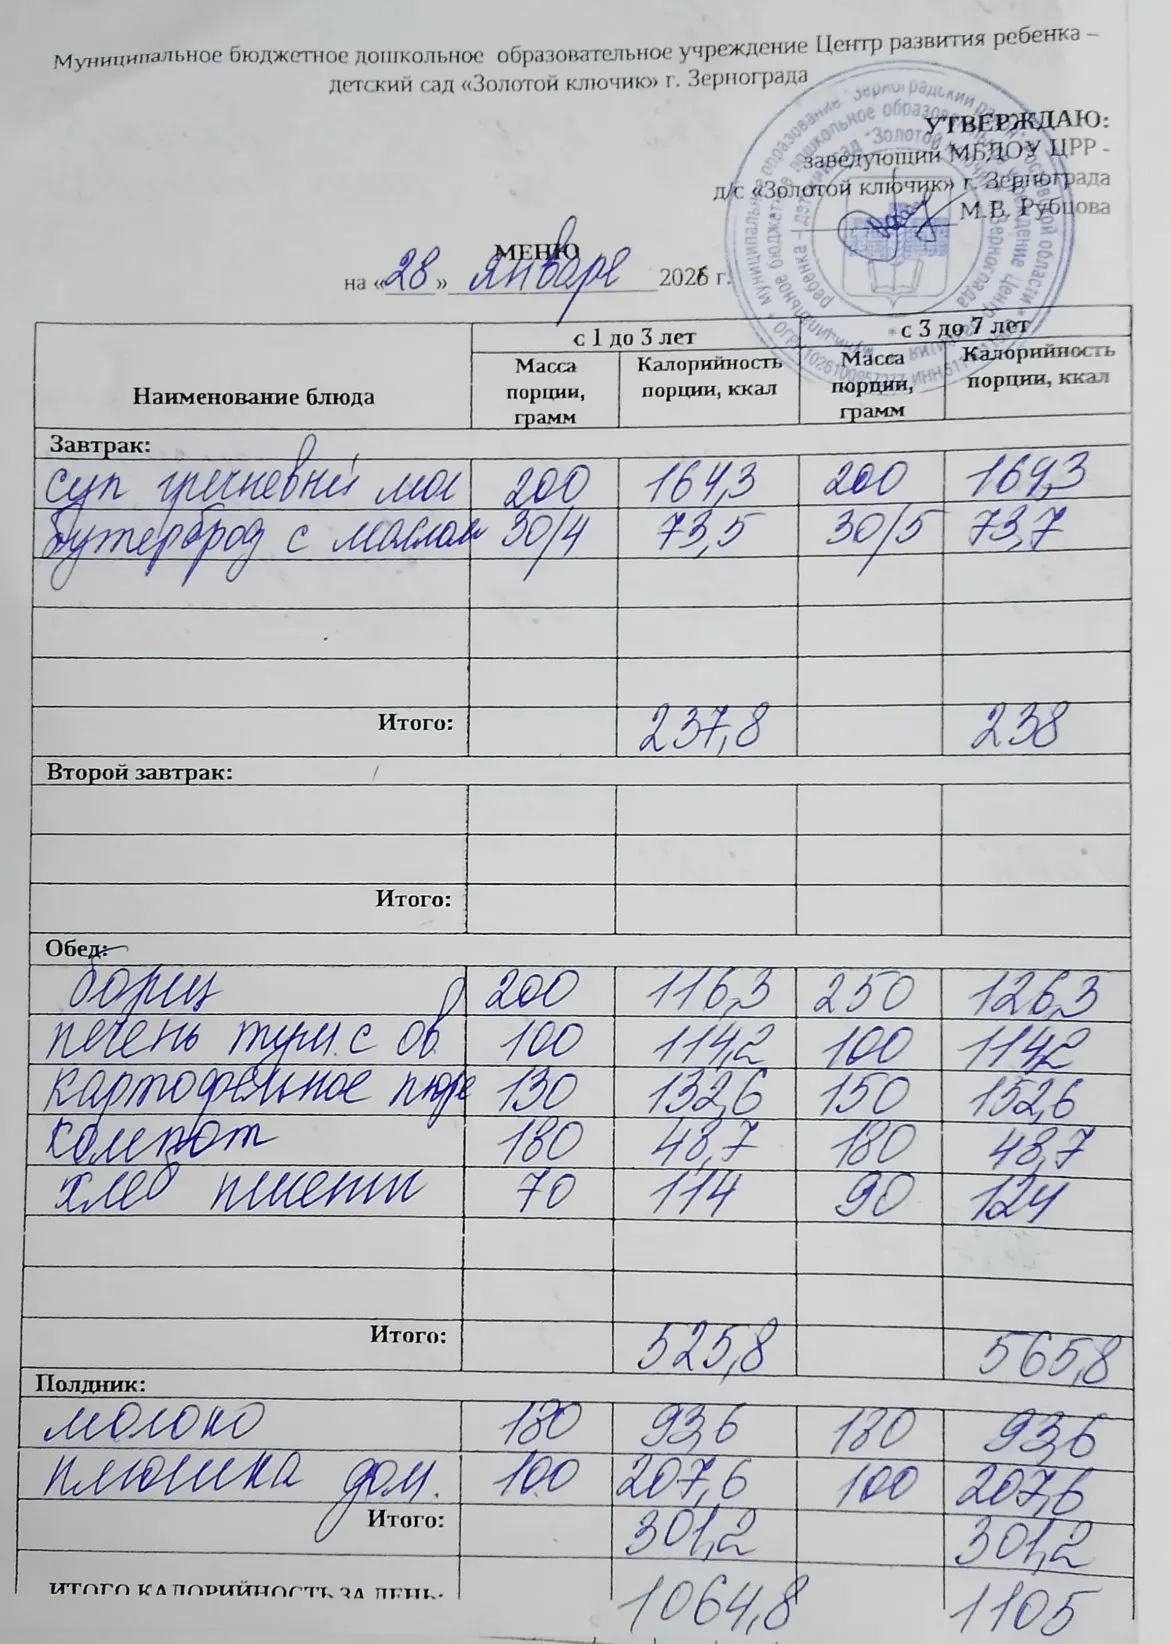 Муниципальное бюджетное дошкольное образовательное учреждение Центр развития ребенка –
детский сад «Золотой ключик» г. Зернограда
УТВЕРЖДАЮ:
заведующий МБДОУ ЦРР -
д/с «Золотой ключик» г. Зернограда
М.В. Рубцова
МЕНЮ
на «28» январе 2026 г.
с 1 до 3 лет с 3 до 7 лет
Наименование блюда Масса порции, грамм Калорийность порции, ккал Масса порции, грамм Калорийность порции, ккал
Завтрак:
суп гречневый мол 200 164,3 200 164,3
бутерброд с маслом 30/4 73,5 30/5 73,7
Итого: 237,8 238
Второй завтрак:
Итого:
Обед:
борщ 200 116,3 250 126,3
печень туш. с ов. 100 114,2 100 114,2
картофельное пюре 130 132,6 150 152,6
компот 180 48,7 180 48,7
хлеб пшенич 70 114 90 124
Итого: 525,8 565,8
Полдник:
молоко 180 93,6 180 93,6
плюшка дом. 100 207,6 100 207,6
Итого: 301,2 301,2
ИТОГО КАЛОРИЙНОСТЬ ЗА ДЕНЬ: 1064,8 1105